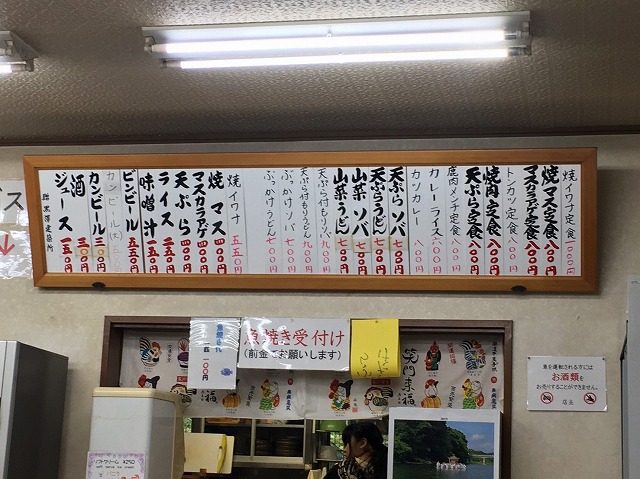 焼イワナ定食 一〇〇〇円
焼マス定食 八〇〇円
マスカラアゲ定食 八〇〇円
トンカツ定食 八〇〇円
焼肉定食 八〇〇円
天ぷら定食 八〇〇円
鹿肉メンチ定食 八〇〇円
カレーライス 六〇〇円
カツカレー 八〇〇円
天ぷらソバ 七〇〇円
天ぷらうどん 七〇〇円
山菜ソバ 七〇〇円
山菜うどん 七〇〇円
天ぷら付もりうどん 九〇〇円
天ぷら付もりソバ 九〇〇円
ぶっかけソバ 七〇〇円
ぶっかけうどん 七〇〇円
焼イワナ 五五〇円
焼マス 四〇〇円
マスカラアゲ 四〇〇円
天ぷら 四〇〇円
ライス 二五〇円
味噌汁 一五〇円
ビンビール 五五〇円
カンビール(大)
カンビール 三〇〇円
酒 三〇〇円
ジュース 一五〇円
贈 黒澤建築所
魚焼き受付け
(前金でお願いします)
笑門来福
来福
車を運転される方には
お酒類を
お売りすることができません。
店主
ソフトクリーム ¥250